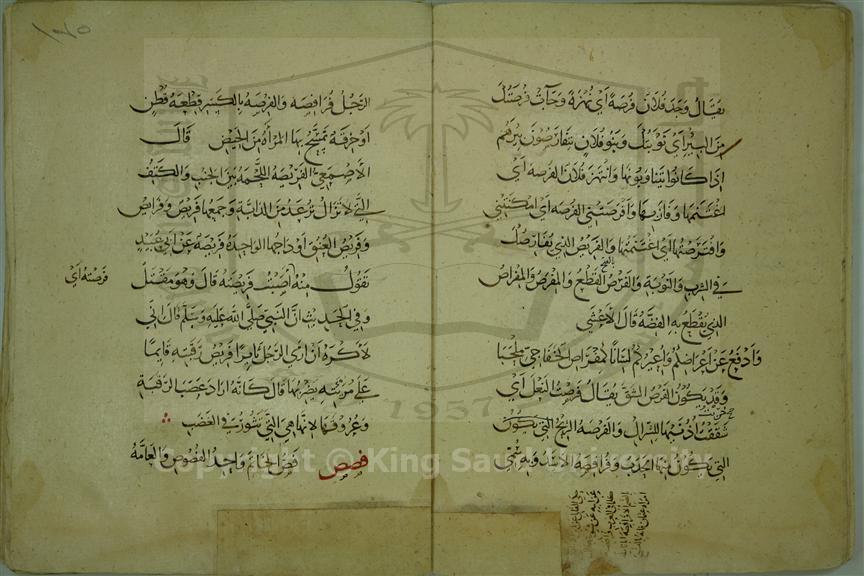 يقال وجد فلان فرصة أي نهزة وجاءت فرصتك
من البئر أي نوبتك وبنو فلان يتفارصون بئرهم
اذا كانوا يتناوبونها وانتهز فلان الفرصة أي
اغتنمها وفاز بها وأفرصتني الفرصة أي امكنتني
وافترصتها أي اغتنمتها والفريص الذي يفارصك
في الشرب والنوبة والفرص القطع والمفرص والمفراص
بالفتح
الذي يقطع به الفضة قال الأعشى
وأدفع عن أعراضكم وأعيركم لسانا كمفراص الخفاجي ملحبا
وقد يكون الفرص الشق يقال فرصت النعل أي
خرقت
شققت أذنيها للشراك والفرصة الريح التي يكون
التي يكون منها الحدب وفرافصة الأسد وبه سمي
الرجل فرافصة والفرصة بالكسر قطعة قطن
او خرقة تمسح بها المرأة من الحيض قال
الأصمعي الفريصة اللحمة بين الجنب والكتف
التي لا تزال ترعد من الدابة وجمعها فريص وفرائص
وفريص العنق أوداجها الواحدة فريصة عن أبي عبيد
تقول منه أصبت فريصته قال وهو مقتل
فرصته أي
وفي الحديث ان النبي صلى الله عليه وسلم قال اني
لأكره أن أرى الرجل ثائرا فريص رقبته قائما
على مريته يضربها قال كأنه اراد عصب الرقبة
وعروقها لأنها هي التي تثور في الغضب
فصص فص الخاتم واحد الفصوص والعامة
١٣٥
1957
Copyright © King Saud University